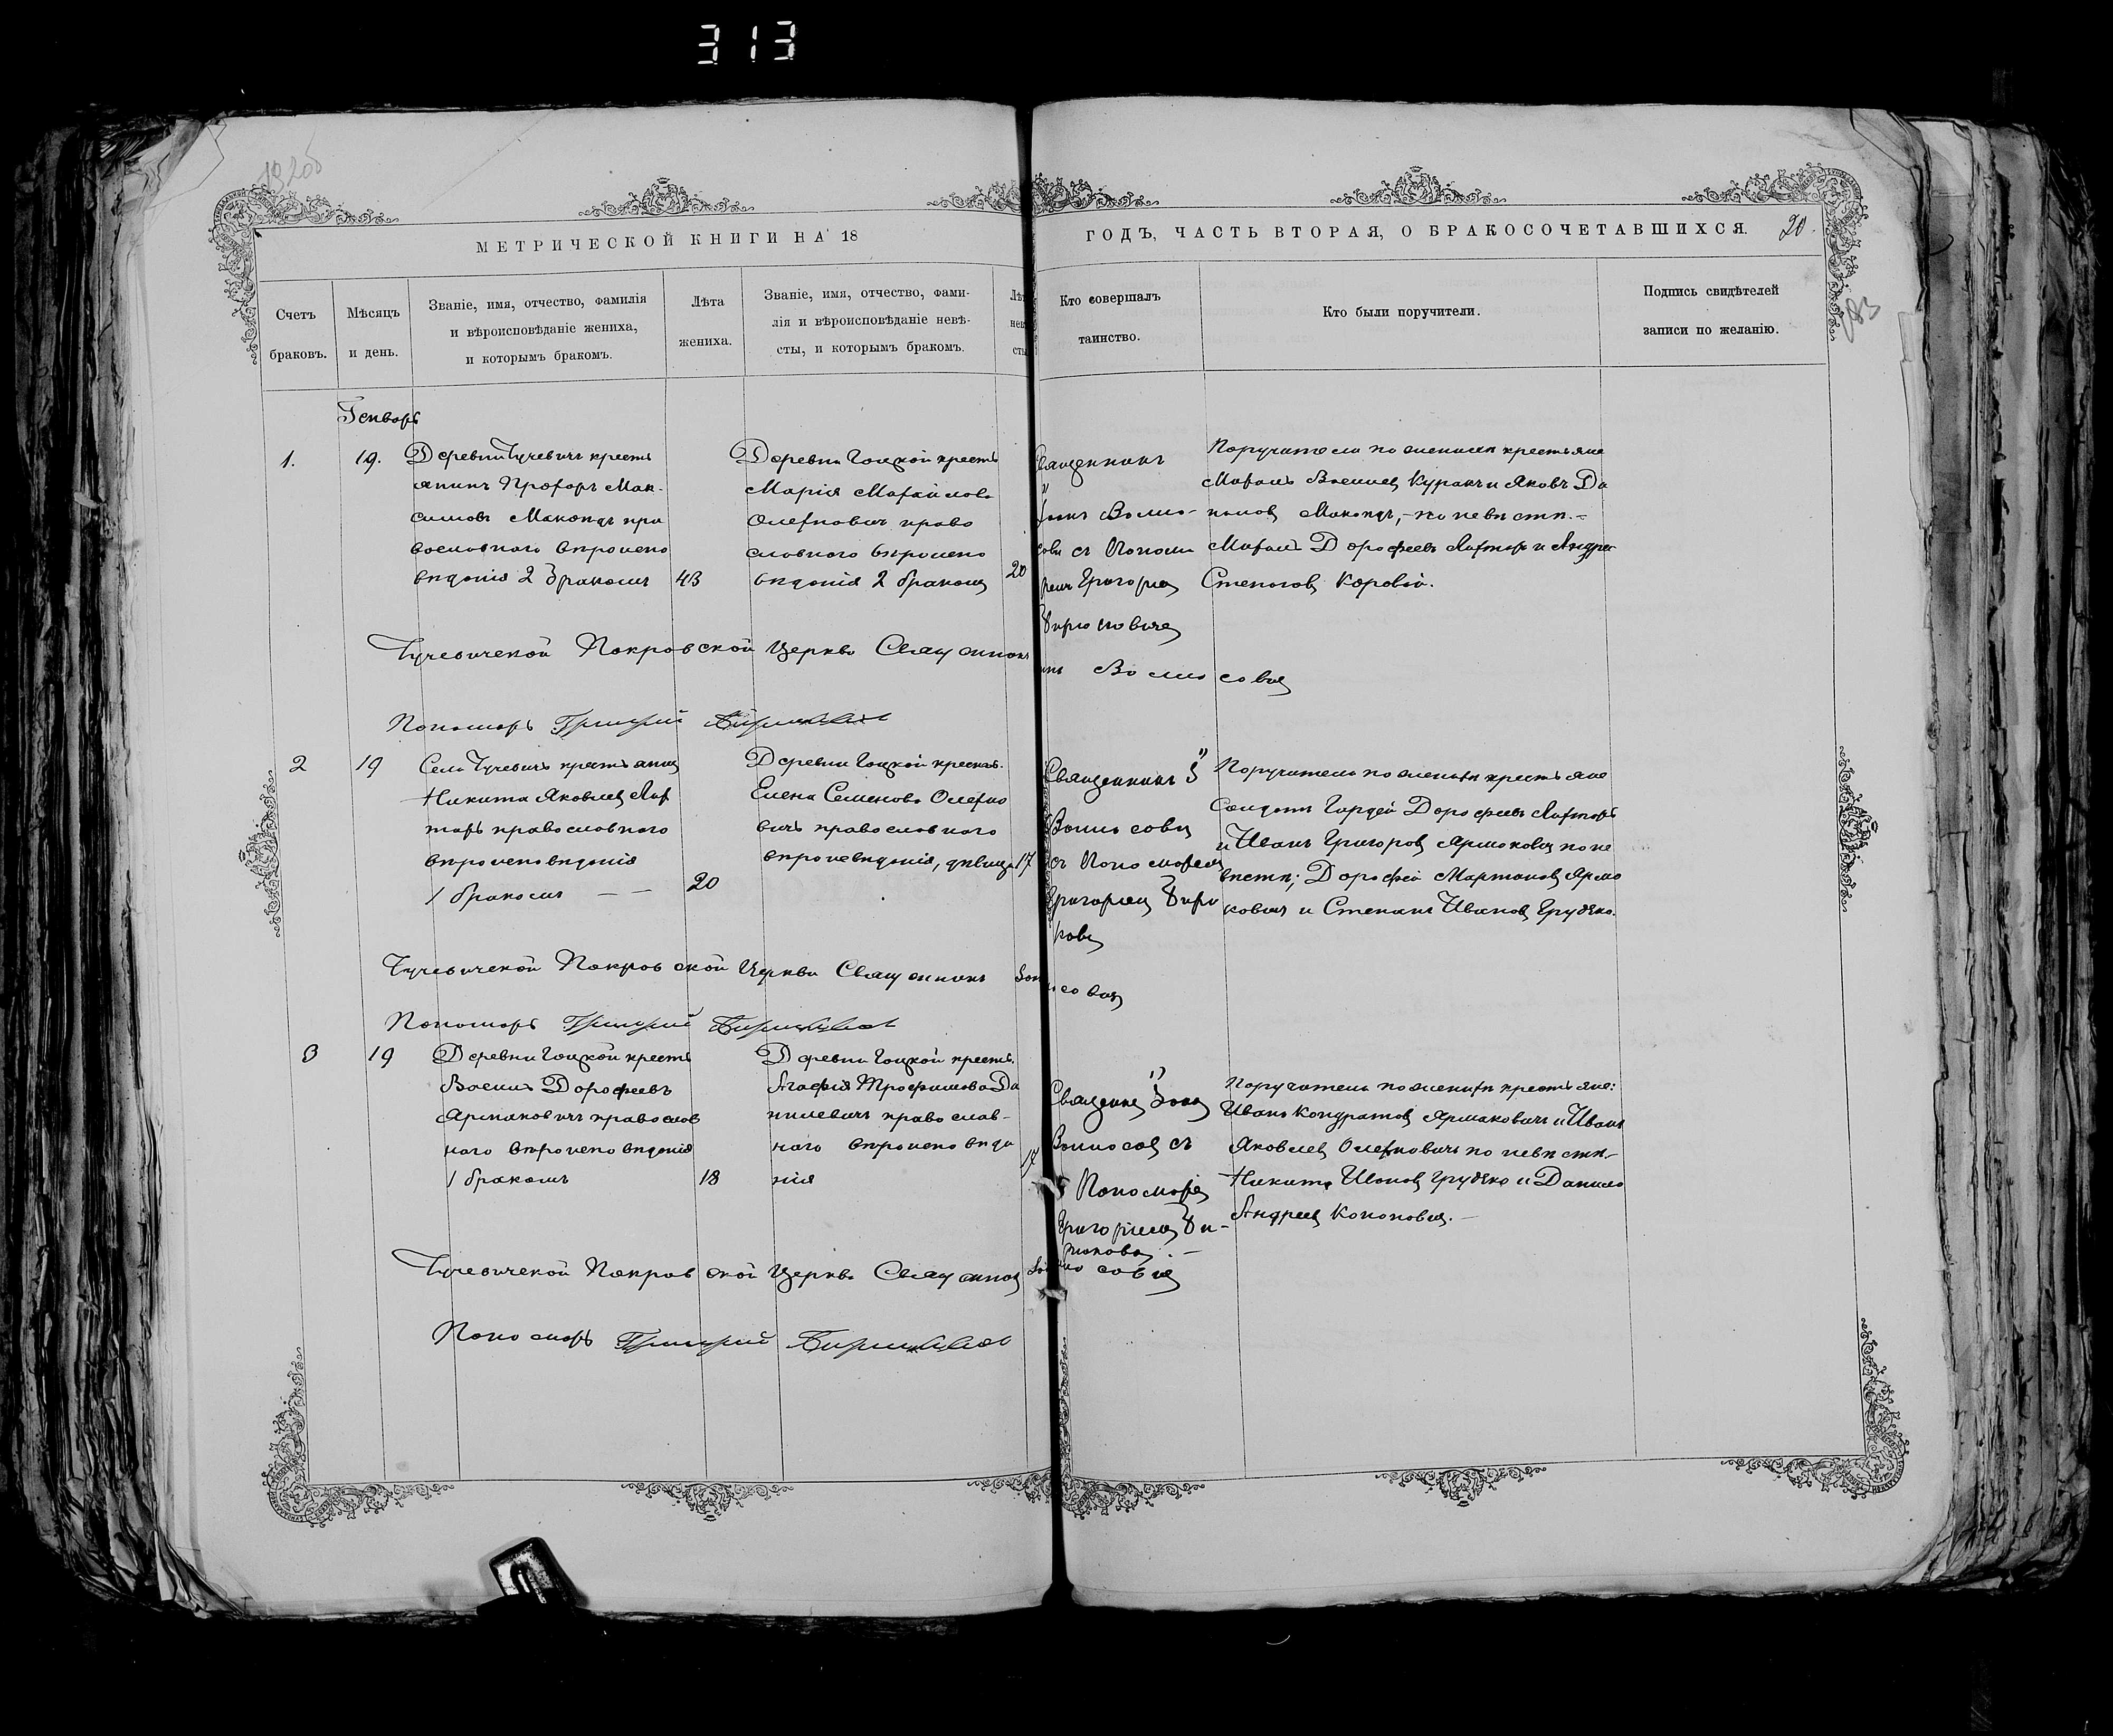 313
МЕТРИЧЕСКОЙ КНИГИ НА 18
ГОДЪ, ЧАСТЬ ВТОРАЯ, О БРАКОСОЧЕТАВШИХСЯ.
20.
Счетъ браковъ.
Мѣсяцъ и день.
Званіе, имя, отчество, фамилія
и вѣроисповѣданіе жениха,
и которымъ бракомъ.
Лѣта
жениха.
Званіе, имя, отчество, фами-
лія и вѣроисповѣданіе невѣ-
сты, и которымъ бракомъ.
Кто совершалъ
таинство.
Кто были поручители.
Подпись свидѣтелей
записи по желанію.
Генварь
1.
19.
Деревни Тучевичъ кресть
янинъ Прохоръ Мак-
симовъ Макондъ пра
вославнаго вѣроиспо
вѣданія 2 бракомъ
43
Деревни Гоцкой кресть
Марія Михайлова
Олехновичъ право
славнаго вѣроиспо
вѣданія 2 бракомъ
20
Священникъ
съ Поном
Григоріем
Поручители по женихѣ крестьяне
Яковъ Да
ниловъ Макондъ, - по невѣстѣ. -
Дорофеевъ Лахторъ и Андрей
Степановъ Коровій.
Тучевичской Покровской Церкви Священникъ
Пономарь Григорій
2
19
Села Тучевичъ крестьянинъ
Никита Яковлевъ Лах
торъ православнаго
вѣроисповѣданія
1 бракомъ — —
20
Деревни Гоцкой крестья.
Елена Семенова Олехно
вичъ православнаго
вѣроисповѣданія, дѣвица
17
Священникъ
съ Пономаремъ
Григоріемъ
Поручители по женихѣ крестьяне
Солдатъ Гордей Дорофеевъ Лахторъ
и Иванъ Григоровъ Ярмоковичъ по не
вѣстѣ; Дорофей Мартиновъ Ярмо
ковичъ и Степанъ Ивановъ Грудзко.
Тучевичской Покровской Церкви Священникъ
Пономарь Григорій
3
19
Деревни Гоцкой кресть
Василь Дорофеевъ
Ярмаковичъ православ
наго вѣроисповѣданія
1 бракомъ
18
Деревни Гоцкой кресть.
Агафія Трофимова Да
нилевичъ православ-
наго вѣроисповѣда
нія
съ Пономаремъ
Григоріемъ
Поручители по женихѣ крестьяне:
Иванъ Кондратовъ Ярмаковичъ и Иванъ
Яковлевъ Олехновичъ по невѣстѣ. -
Никита Ивановъ Грудзко и Данило
Андреевъ Кононовичъ. -
Тучевичской Покровской Церкви Священникъ
Пономарь Григорій